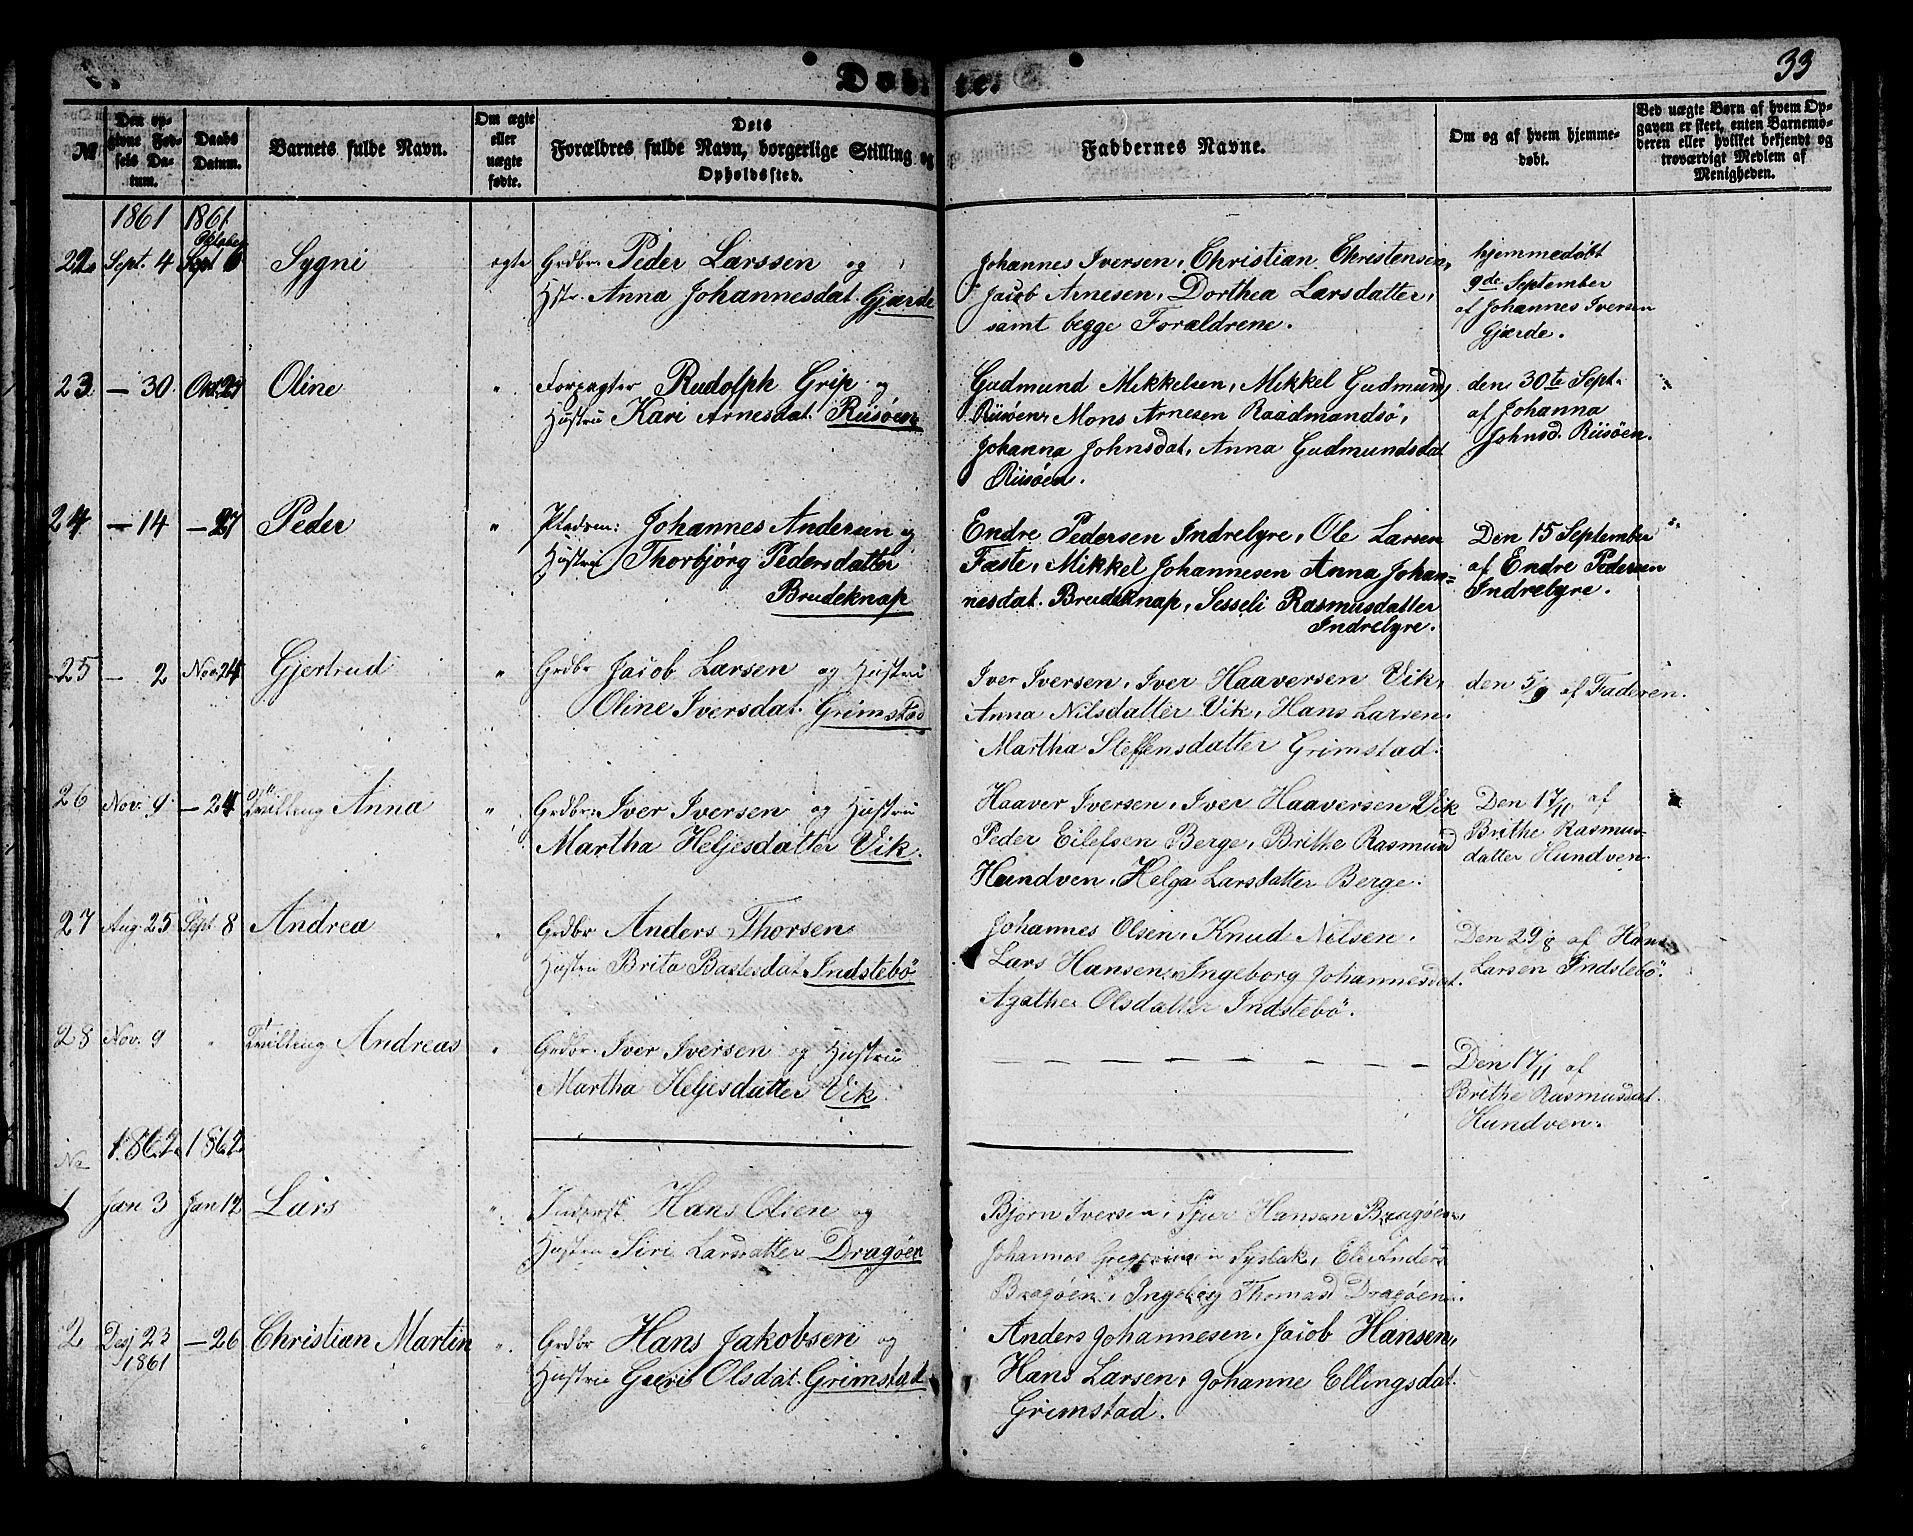 Døbte.
33
№
Den opgivne Fødsels Datum.
Daabs Datum.
Barnets fulde Navn.
Om ægte eller uægte fødte.
Dets Forældres fulde Navn, borgerlige Stilling og Opholdssted.
Faddernes Navne.
Om og af hvem hjemmedøbt.
Ved uægte Børn af hvem Opgaven er skeet, enten Barnemoderen eller hvilket bekjendt og troværdigt Medlem af Menigheden.
1861 1861
Oktober
22. Sept. 4 Sept 6 Sygni ægte Grdbr: Peder Larssen og
Hstr. Anna Johannesdat. Gjærde
Johannes Iversen, Christian Christensen,
Jacob Arnesen, Dorthea Larsdatter,
samt begge Forældrene.
hjemmedøbt
9de September
af Johannes Iversen
Gjærde.
23 — 30. Okt. 27 Oline " Forpagter Rudolph Grip og
Hustru Kari Arnesdat. Riisöen
Gudmund Mikkelsen, Mikkel Gudmund,
Riisöen, Mons Arnesen Raadmandsö,
Johanna Johnsdat, Anna Gudmundsdat
Riisöen.
den 30te Sept.
af Johanna
Johnsd. Riisöen.
24 — 14 — 27 Peder " Pladsm: Johannes Andersen og
Hustru Thorbjørg Pedersdatter
Brudeknap
Endre Pedersen Indrelyre, Ole Larsen
Fæste, Mikkel Johannesen Anna Johan=
nesdat. Brudeknap, Sesseli Rasmusdatter
Indrelyre.
Den 15 September
af Endre Pedersen
Indrelyre.
25 — 2 Nov. 24 Gjertrud " Grdbr Jacob Larsen og Hustru
Oline Iversdat. Grimstad
Iver Iversen, Iver Haaversen Vik,
Anna Nilsdatter Vik, Hans Larsen
Martha Steffensdatter Grimstad.
den 5/9 af Faderen.
26 Nov. 9 — 24 Tvilling Anna " Grdbr: Iver Iversen og Hustru
Martha Heljesdatter Vik.
Haaver Iversen, Iver Haaversen Vik
Peder Eilefsen Berge, Brithe Rasmusd
Hundven, Helga Larsdatter Berge.
Den 17/11 af
Brithe Rasmus-
datter Hundven.
27 Aug. 25 Sept 8 Andrea " Grdbr Anders Thorsen
Hustru Brita Bastesdat. Indstebö
Johannes Olsen, Knud Nilsen.
Lars Hansen, Ingeborg Johannesdat.
Agathe Olsdatter Indstebö.
Den 29/8 af Hans
Larsen Indstebö.
28 Nov. 9 " Tvilling Andreas " Grdbr. Iver Iversen og Hustru
Martha Heljesdatter Vik.
— — — — — — — — —
Den 17/11 af
Brithe Rasmusdat.
Hundven.
No 1862 1862
1 Jan 3 Jan 12 Lars " Hans Olsen og
Hustru Siri Larsdatter Dragöen
Bjørn Iversen, Sjur Hansen Dragöen,
Johannes Syslak, Eli Anders
Dragöen, Ingeborg Thomasd Dragöen.
2 Dej 23 — 26 Christian Martin " Grdbr Hans Jakobsen og
1861 Hustru Guri Olsdat. Grimstad
Anders Johannesen, Jacob Hansen,
Hans Larsen, Johanne Ellingsdat.
Grimstad.